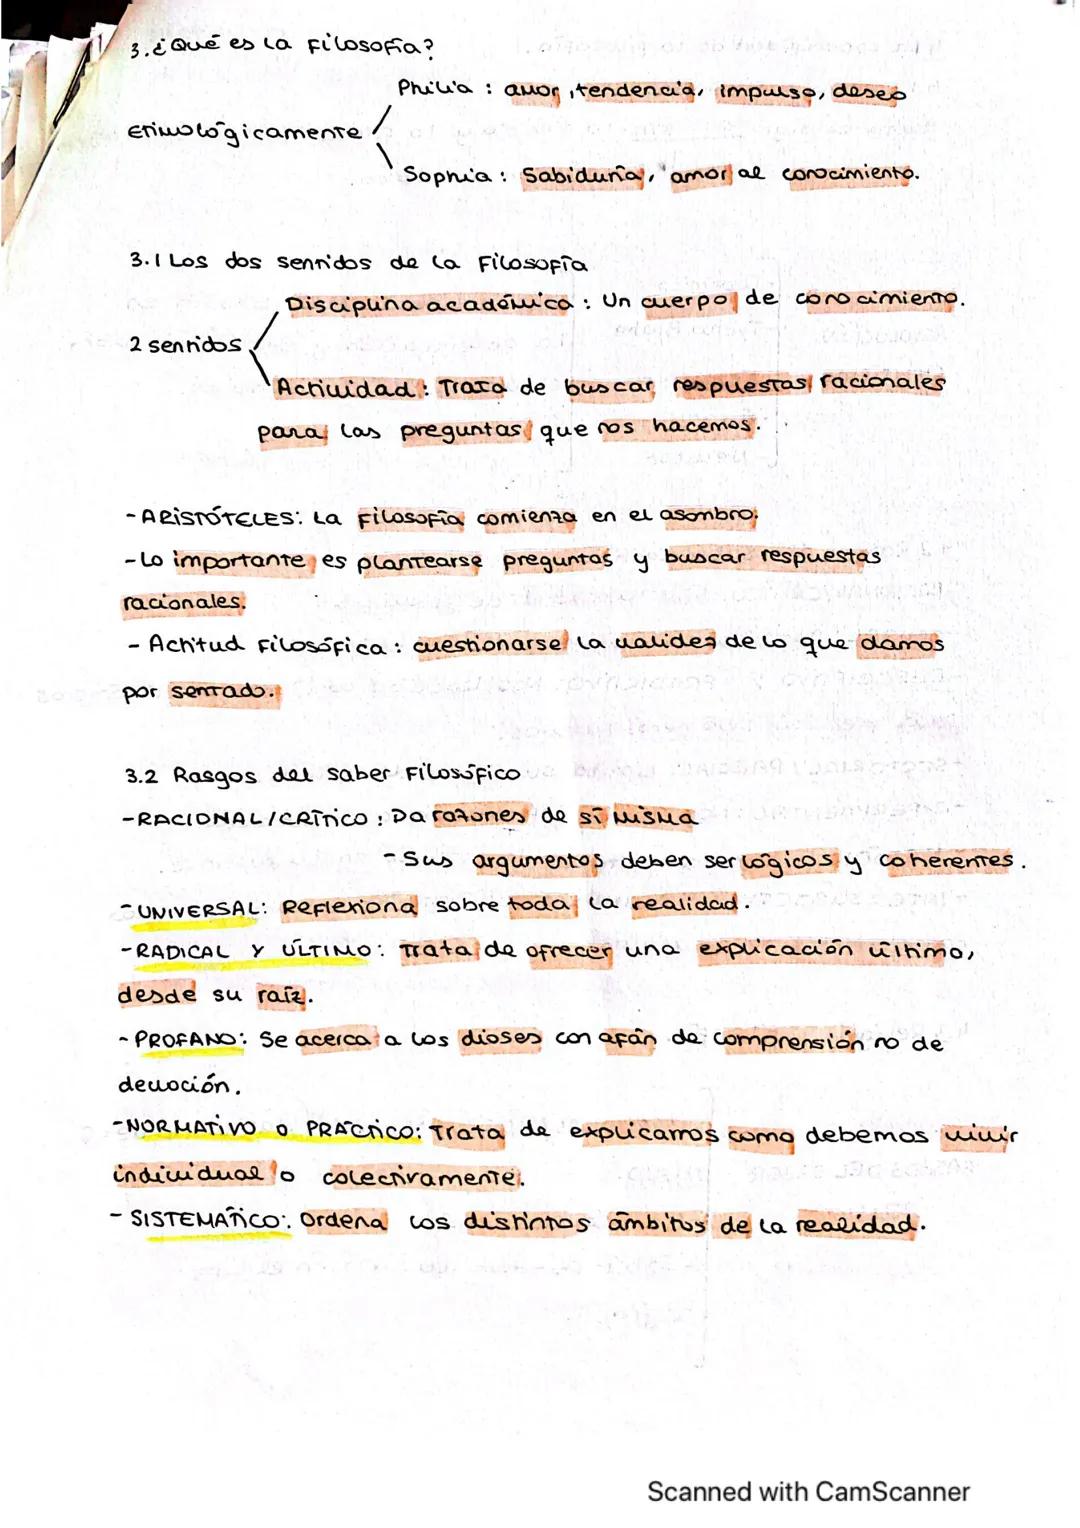 3. ¿Qué es la Filosofía?
Philia : amor, tendencia, impulso, deseo
Etimológicamente
Sophia : Sabiduría, amor al conocimiento.
3.1 Los dos sentidos de la Filosofía
Disciplina académica : Un cuerpo de conocimiento.
2 sentidos
Actividad : Trata de buscar respuestas racionales
para las preguntas que nos hacemos.
- ARISTÓTELES: La Filosofía comienza en el asombro.
- Lo importante es plantearse preguntas y buscar respuestas
racionales.
- Actitud Filosófica : cuestionarse la validez de lo que damos
por sentado.
3.2 Rasgos del saber Filosófico
- RACIONAL/CRÍTICO : Da razones de sí misma
- Sus argumentos deben ser lógicos y coherentes.
- UNIVERSAL: Reflexiona sobre toda la realidad.
- RADICAL Y ÚLTIMO: Trata de ofrecer una explicación último,
desde su raíz.
- PROFANO: Se acerca a los dioses con afán de comprensión no de
devoción.
- NORMATIVO O PRÁCTICO: Trata de explicarnos como debemos vivir
individual o colectivamente.
- SISTEMÁTICO: Ordena los distintos ámbitos de la realidad.
Scanned with CamScanner